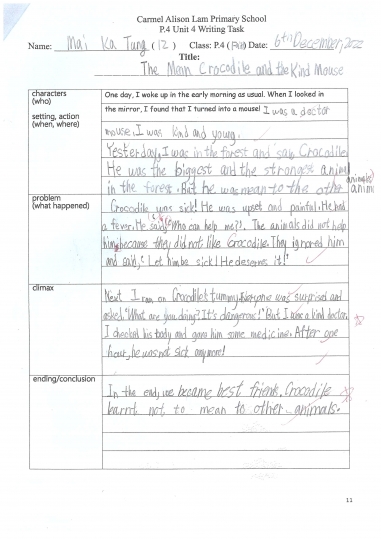 Carmel Alison Lam Primary School
P.4 Unit 4 Writing Task
Name: Mai Ka Tung (12) Class: P.4 ( ) Date: 6th December, 2022
Title:
The Mean Crocodile and the Kind Mouse
characters
(who)
setting, action
(when, where)
One day, I woke up in the early morning as usual. When I looked in
the mirror, I found that I turned into a mouse! I was a doctor
mouse. I was kind and young.
Yesterday, I was in the forest and saw Crocodile
He was the biggest and the strongest animal
in the forest. But he was mean to the other animals
problem
(what happened)
Crocodile was sick! He was upset and painful. He had
a fever. He said, "Who can help me?". The animals did not help
him because they did not like Crocodile. They ignored him
and said, "Let him be sick! He deserves it!"
climax
Next I ran on Crocodile's tummy. Everyone was surprised and
asked, "What are you doing? It's dangerous!" But I was a kind doctor.
I checked his body and gave him some medicine. After one
hour, he was not sick anymore!
ending/conclusion
In the end, we became best friends. Crocodile
learnt not to mean to other animals.
11